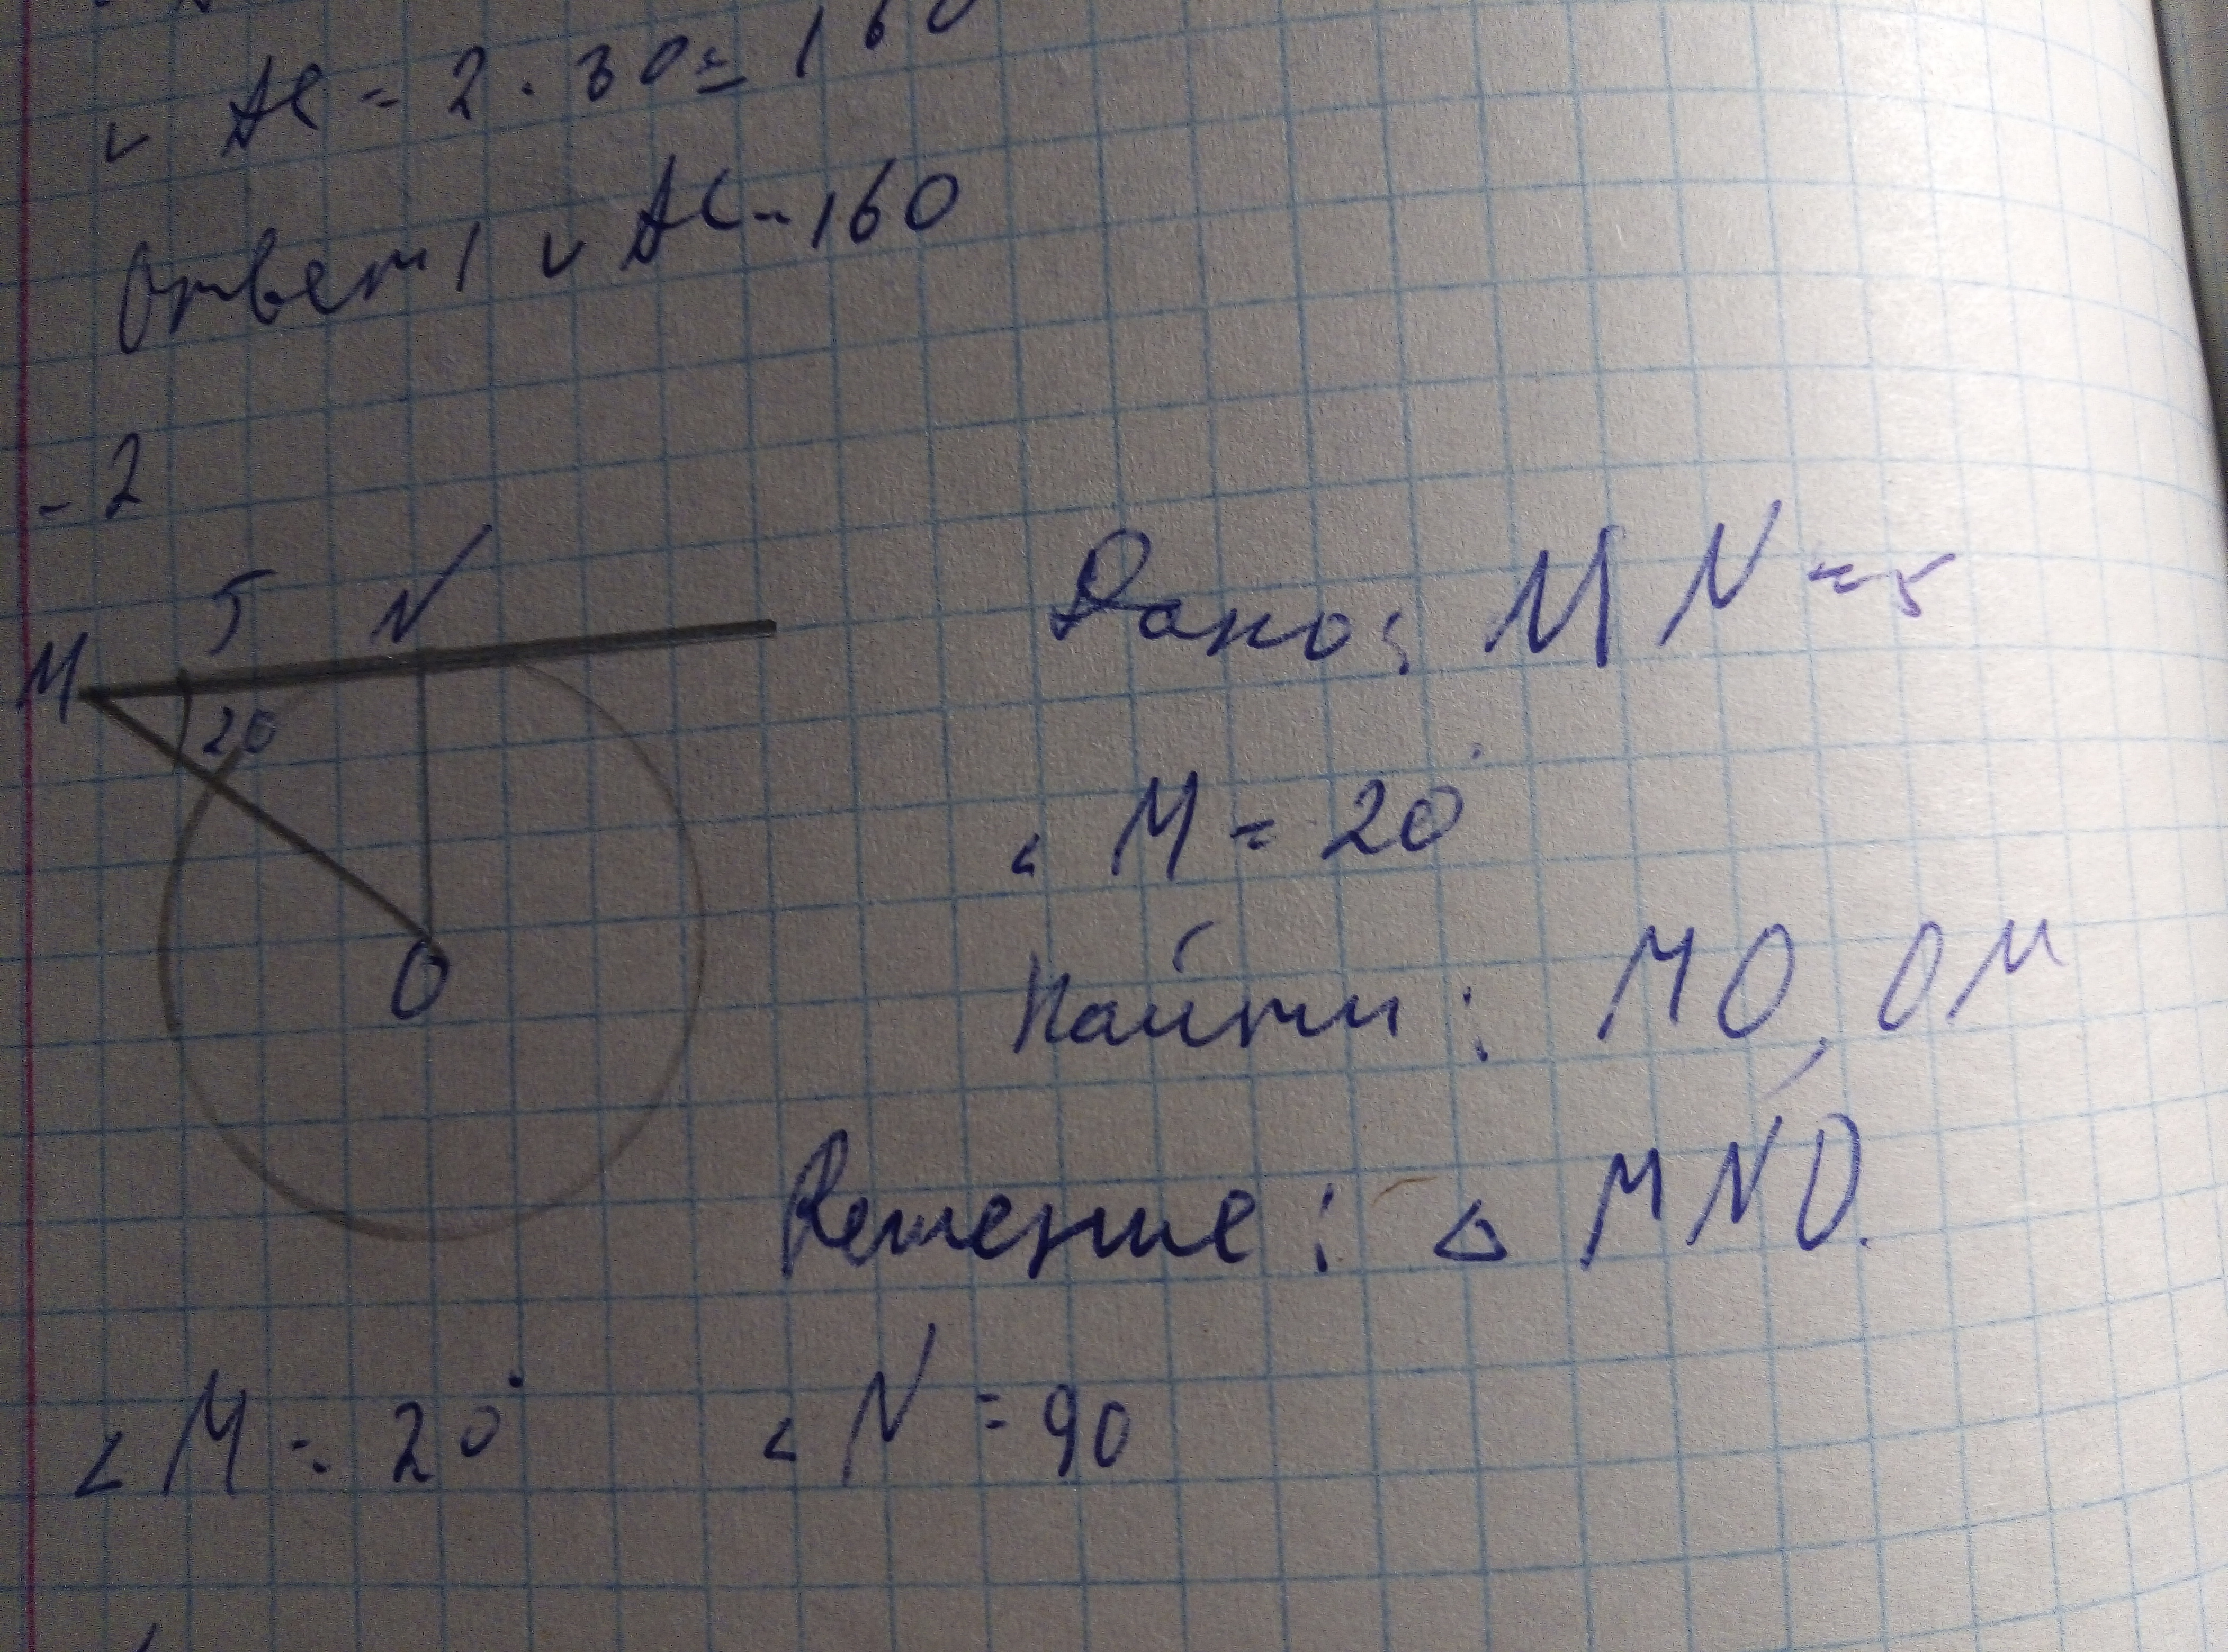 ◡ AC = 2 · 80 = 160
Ответ! ◡ AC - 160
- 2
M 5 N
20
O
Дано: MN = 5
∠ M = 20°
Найти: MO, ОМ
Решение: △ MNO.
∠ M = 20° ∠ N = 90